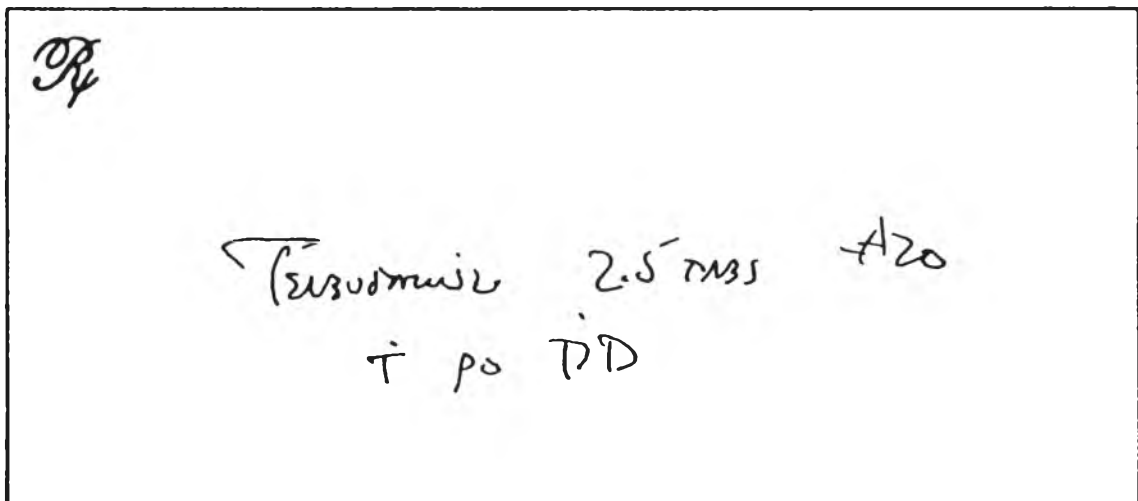 ℞
Terbutaline 2.5 TABS #20
i po TID